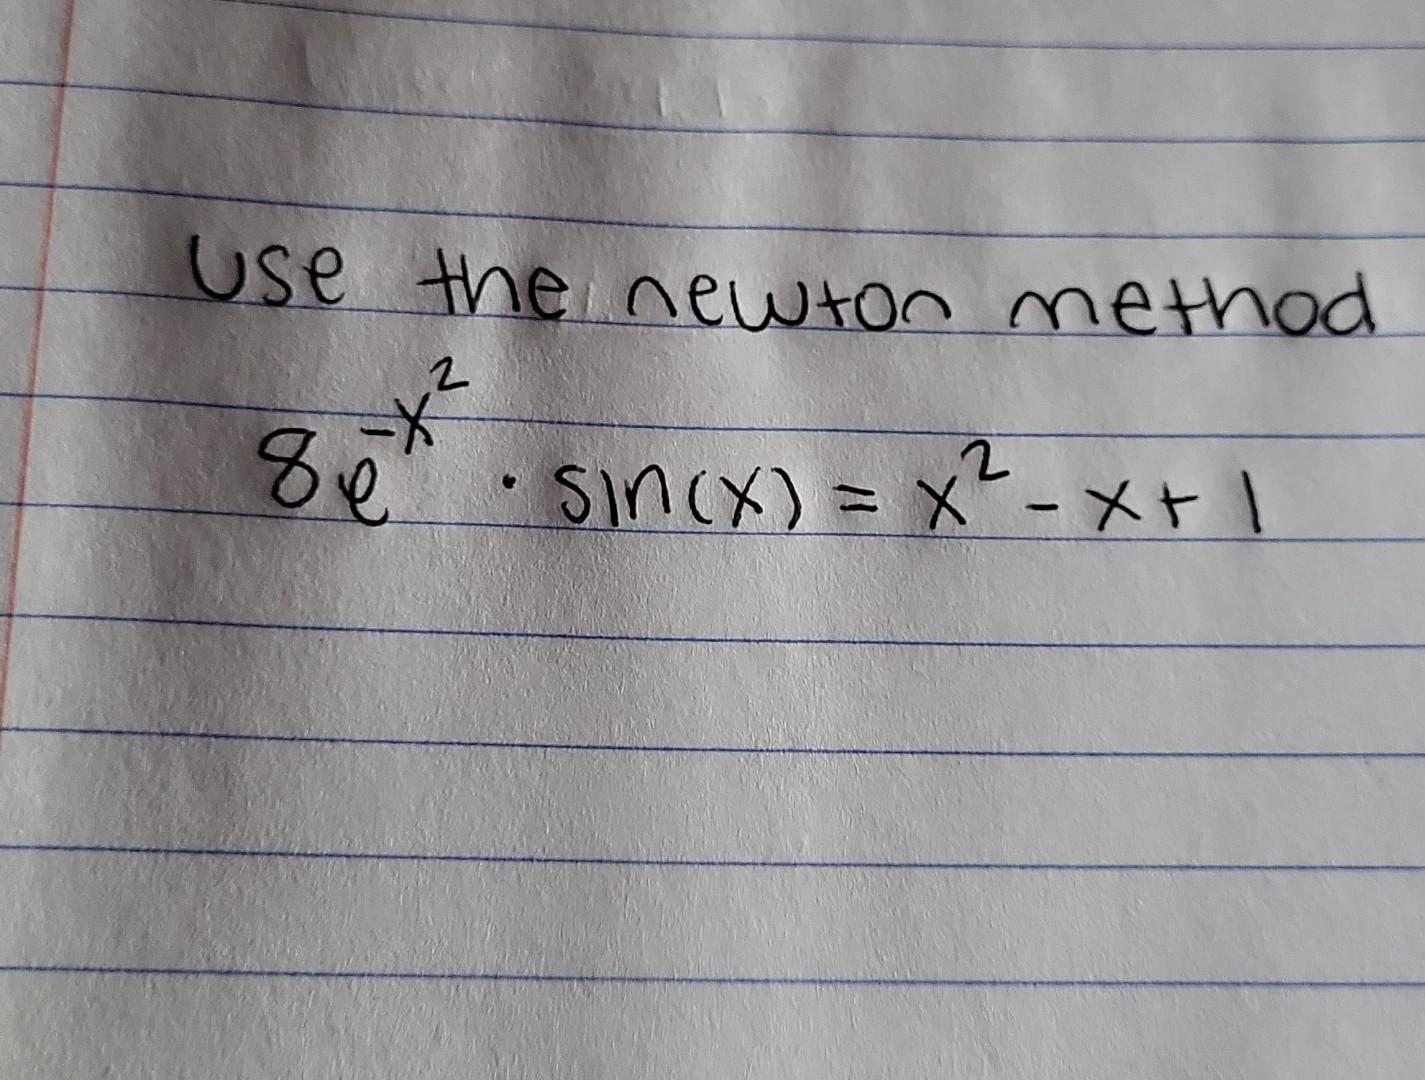 use the newton method
8e^{-x^2} · sin(x) = x^2 - x + 1